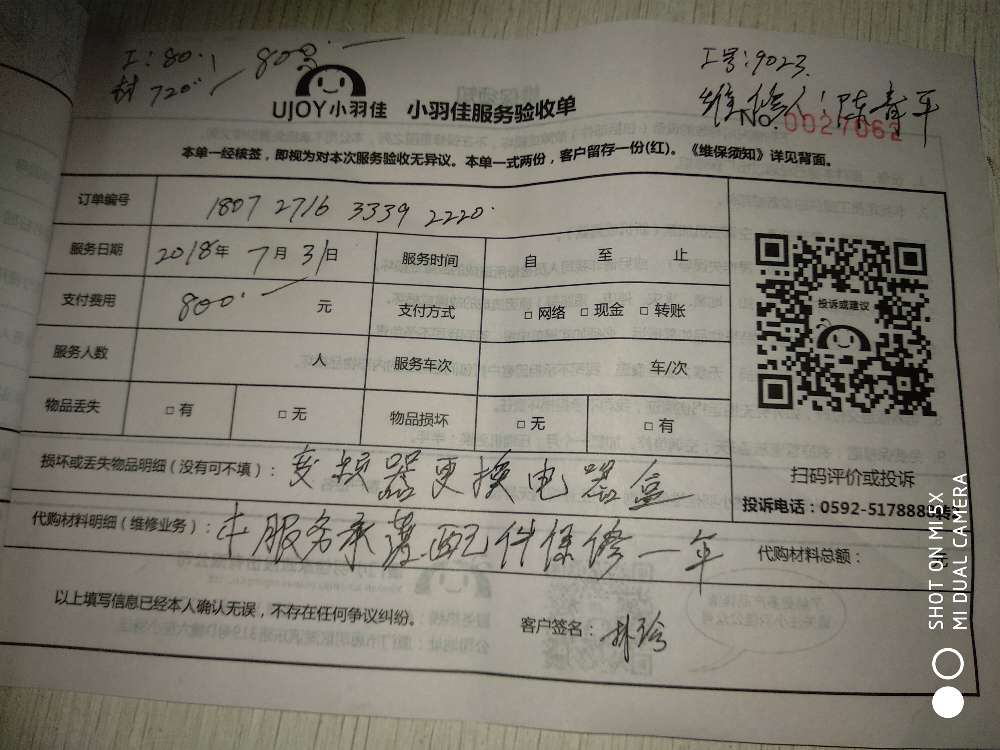 工:80.
材720
800
工号:9023.
维修人:陈春平
UJOY小羽佳 小羽佳服务验收单
No. 0027062
本单一经核签，即视为对本次服务验收无异议。本单一式两份，客户留存一份(红)。《维保须知》详见背面。
订单编号 1807 2716 3339 2220.
服务日期 2018年 7月 31日 服务时间 自 至 止
支付费用 800. 元 支付方式 □ 网络 □ 现金 □ 转账
服务人数 人 服务车次 车/次
物品丢失 □ 有 □ 无 物品损坏 □ 无 □ 有
投诉或建议
损坏或丢失物品明细（没有可不填）： 变频器更换电器盒
扫码评价或投诉
投诉电话：0592-5178889转
代购材料明细（维修业务）： 本服务承诺配件保修一年 代购材料总额： 元
以上填写信息已经本人确认无误，不存在任何争议纠纷。
客户签名： 林玲
SHOT ON MI 5X
MI DUAL CAMERA